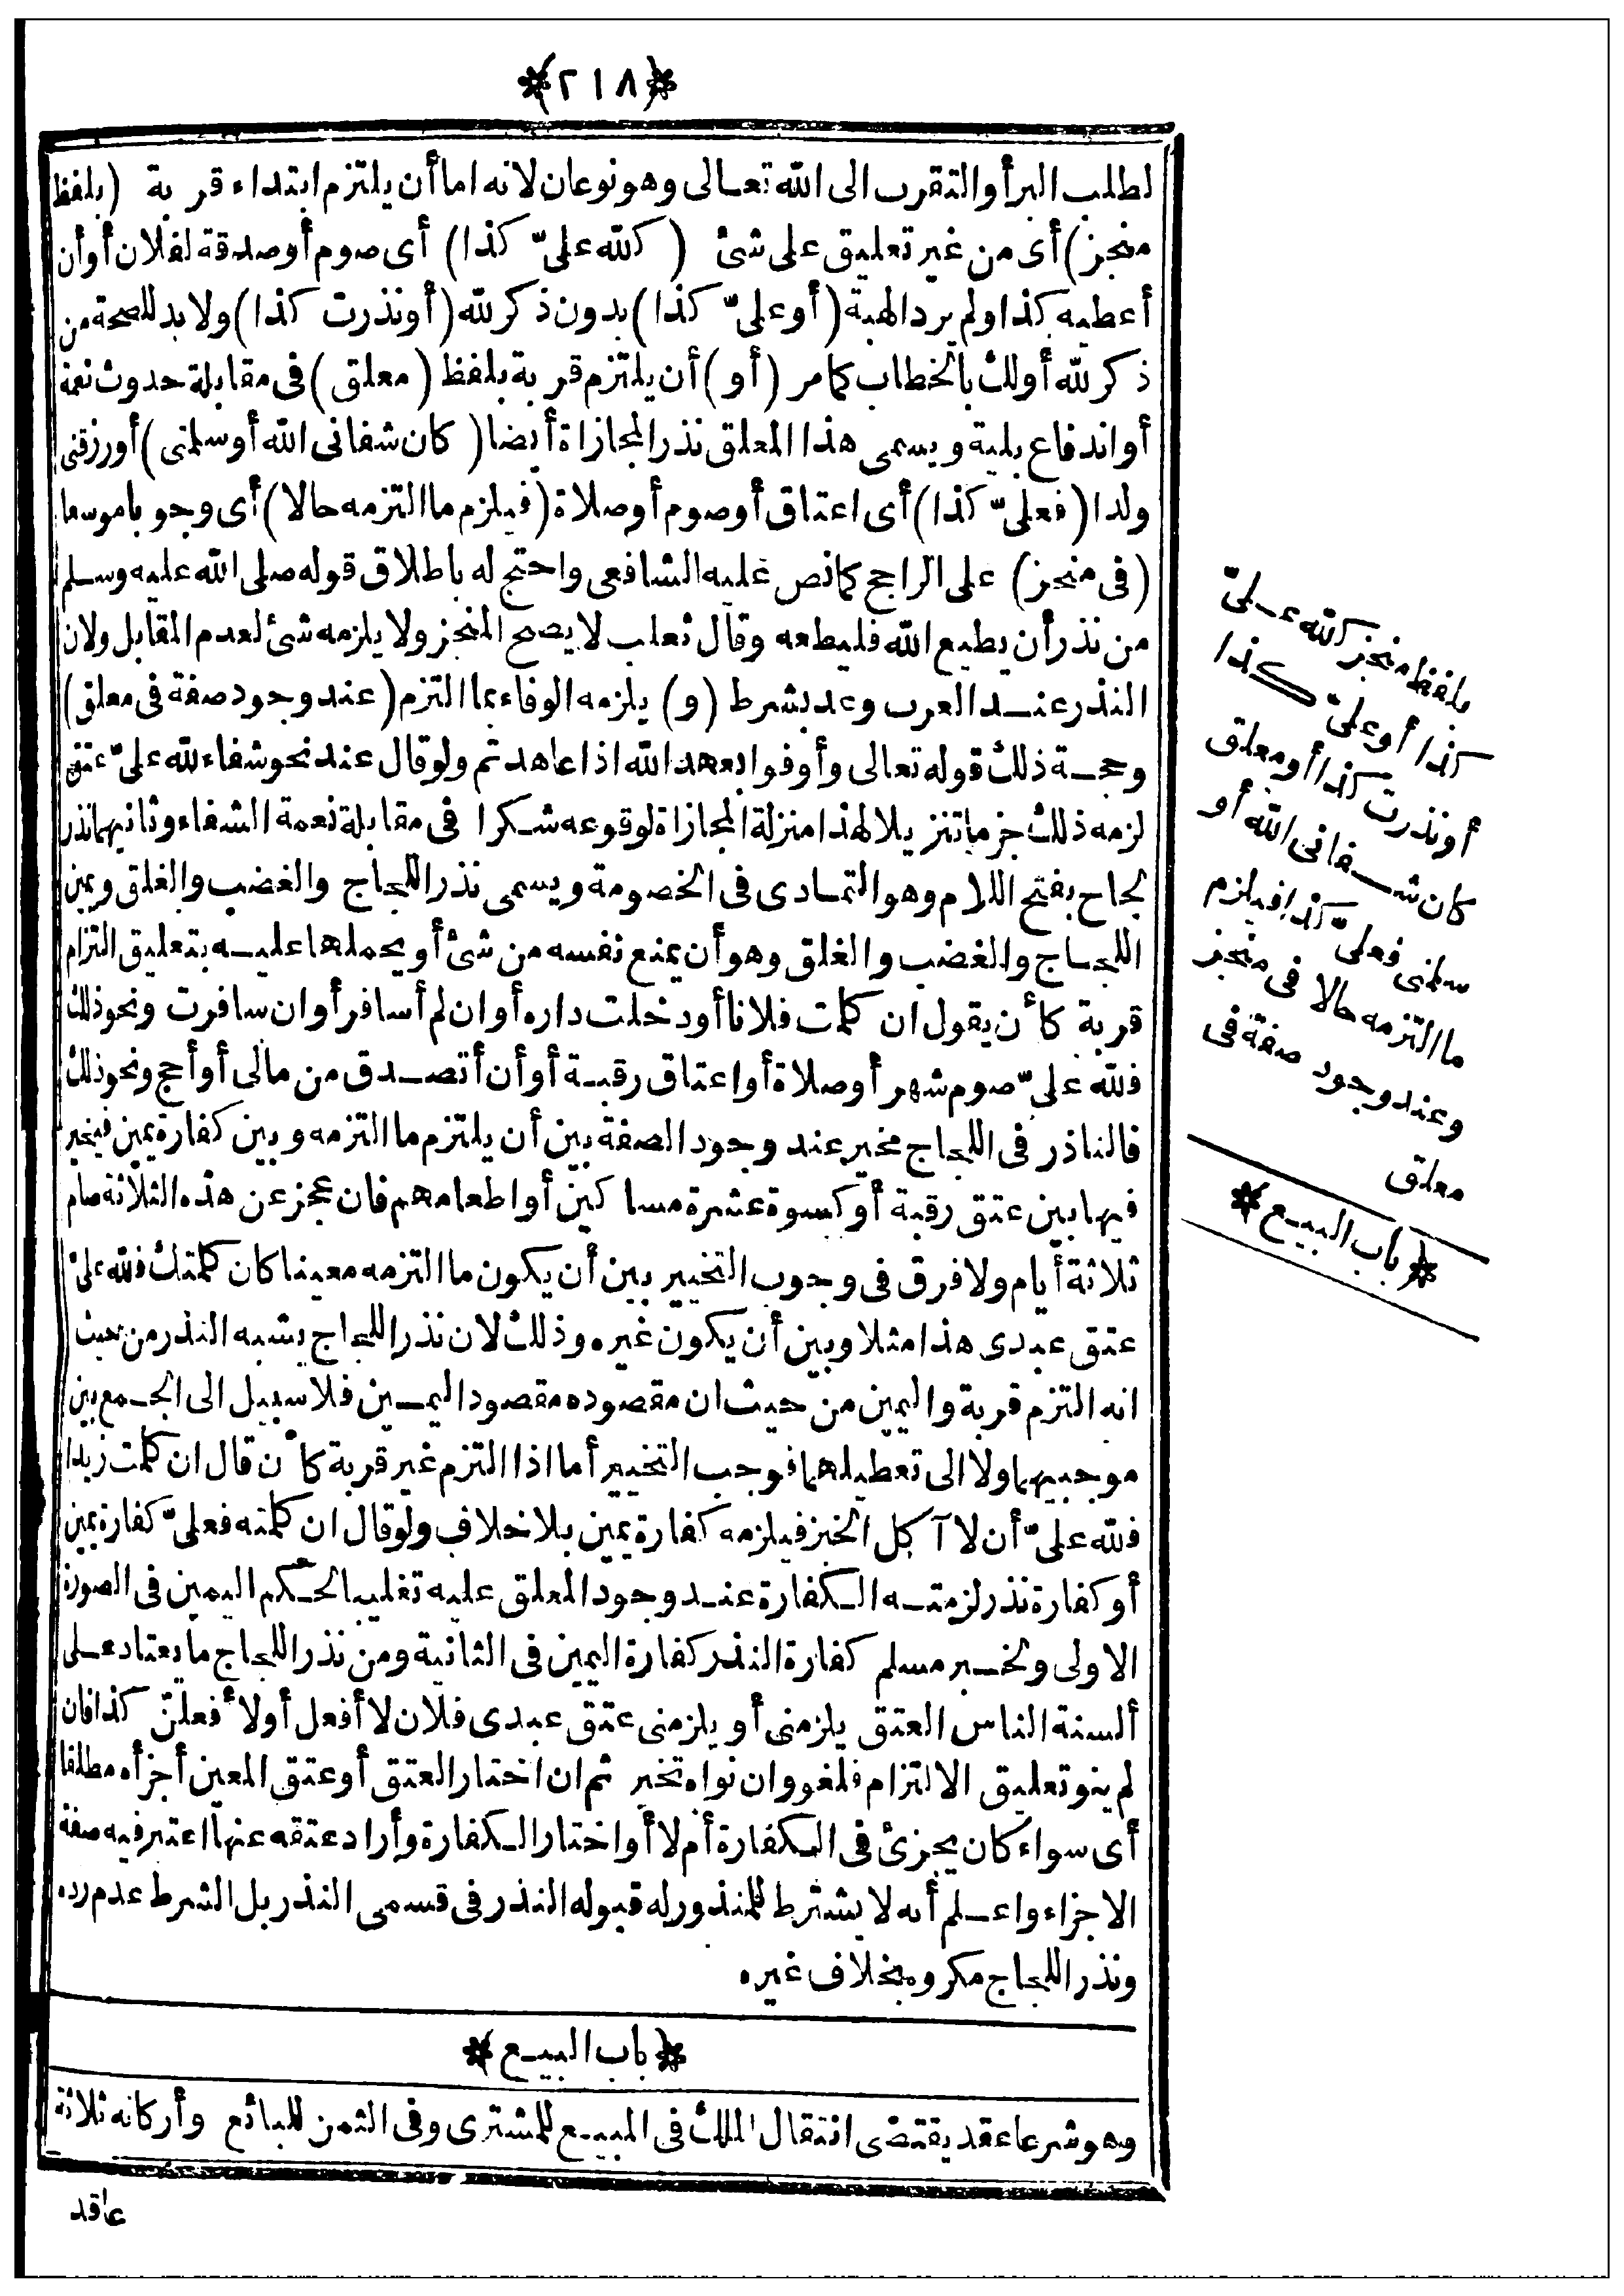 ﴿٢١٨﴾
لطلب البر أو التقرب الى الله تعالى وهو نوعان لانه اما أن يلتزم ابتداء قربة (بلفظ
منجز) أى من غير تعليق على شئ (كلله علىّ كذا) أى صوم أو صدقة لفلان أو أن
أعطيه كذا ولم يرد الهبة (أو علىّ كذا) بدون ذكر لله (أو نذرت كذا) ولا بد للصحة من
ذكر لله أو لك بالخطاب كما مر (أو) أن يلتزم قربة بلفظ (معلق) فى مقابلة حدوث نعمة
أو اندفاع بلية ويسمى هذا المعلق نذر المجازاة أيضا (كان شفانى الله أو سلمنى) أو رزقنى
ولدا (فعلىّ كذا) أى اعتاق أو صوم أو صلاة (فيلزم ما التزمه حالا) أى وجوبا موسعا
(فى منجز) على الراجح كما نص عليه الشافعى واحتج له باطلاق قوله صلى الله عليه وسلم
من نذر أن يطيع الله فليطعه وقال ثعلب لا يصح المنجز ولا يلزمه شئ لعدم المقابل ولان
النذر عند العرب وعد بشرط (و) يلزمه الوفاء بما التزم (عند وجود صفة فى معلق)
وحجة ذلك قوله تعالى وأوفوا بعهد الله اذا عاهدتم ولو قال عند نحو شفاء لله علىّ عتق
لزمه ذلك جزما تنزيلا لهذا منزلة المجازاة لوقوعه شكرا فى مقابلة نعمة الشفاء وثانيهما نذر
لجاج بفتح اللام وهو التمادى فى الخصومة ويسمى نذر اللجاج والغضب والغلق ويمين
اللجاج والغضب والغلق وهو أن يمنع نفسه من شئ أو يحملها عليه بتعليق التزام
قربة كأن يقول ان كلمت فلانا أو دخلت داره أو ان لم أسافر أو ان سافرت ونحو ذلك
فلله علىّ صوم شهر أو صلاة أو اعتاق رقبة أو أن أتصدق من مالى أو أحج ونحو ذلك
فالناذر فى اللجاج مخير عند وجود الصفة بين أن يلتزم ما التزمه وبين كفارة يمين فيخير
فيها بين عتق رقبة أو كسوة عشرة مساكين أو اطعامهم فان عجز عن هذه الثلاثة صام
ثلاثة أيام ولا فرق فى وجوب التخيير بين أن يكون ما التزمه معينا كان كلمتك فلله علىّ
عتق عبدى هذا مثلا وبين أن يكون غيره وذلك لان نذر اللجاج يشبه النذر من حيث
انه التزم قربة واليمين من حيث ان مقصوده مقصود اليمين فلا سبيل الى الجمع بين
موجبيهما ولا الى تعطيلهما فوجب التخيير أما اذا التزم غير قربة كأن قال ان كلمت زيدا
فلله علىّ أن لا آكل الخبز فيلزمه كفارة يمين بلا خلاف ولو قال ان كلمته فعلىّ كفارة يمين
أو كفارة نذر لزمته الكفارة عند وجود المعلق عليه تغليبا لحكم اليمين فى الصورة
الاولى ولخبر مسلم كفارة النذر كفارة اليمين فى الثانية ومن نذر اللجاج ما يعتاد على
ألسنة الناس العتق يلزمنى أو يلزمنى عتق عبدى فلان لا أفعل أو لا فعلنّ كذا فان
لم ينو تعليق الالتزام فلغو وان نواه تخير ثم ان اختار العتق أو عتق المعين أجزأه مطلقا
أى سواء كان يجزئ فى الكفارة أم لا أو اختار الكفارة وأراد عتقه عنها اعتبر فيه صفة
الاجزاء واعلم أنه لا يشترط للمنذور له قبوله النذر فى قسمى النذر بل الشرط عدم رده
ونذر اللجاج مكروه بخلاف غيره
﴿باب البيع﴾
وهو شرعا عقد يقتضى انتقال الملك فى المبيع للمشترى وفى الثمن للبائع وأركانه ثلاثة
عاقد
بلفظ منجز كلله علىّ
كذا أو علىّ كذا
أو نذرت كذا أو معلق
كان شفانى الله أو
سلمنى فعلىّ كذا فيلزم
ما التزمه حالا فى منجز
وعند وجود صفة فى
معلق
﴿باب البيع﴾